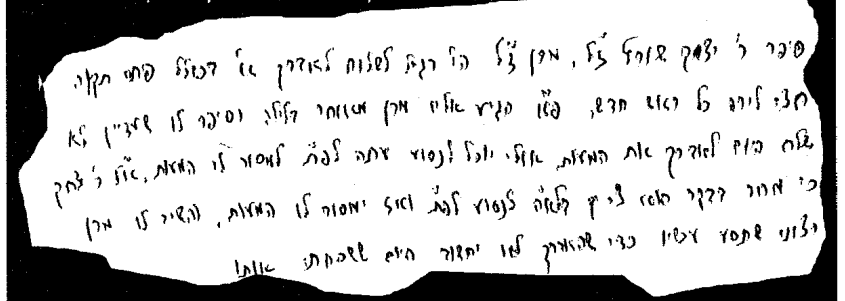 סיפר ר' יצחק שורץ ז"ל, מרן ז"ל הי' רגיל לשלוח לאברך א' בכולל פתח תקוה
חצי לירה כל ראש חדש, פ"א הגיע אליו מרן מאוחר בלילה וסיפר לו שעדיין לא
שלח היום לאברך את המעות אולי יוכל לנסוע עתה לפ"ת למסור לו המעות, א"ל ר' יצחק
כי מחר בבקר הוא צריך בלא"ה לנסוע לפ"ת ואז ימסור לו המעות, והשיב לו מרן
רצוני שתסע עכשיו כדי שהאברך לא יחשוב היום ששכחתי אותו